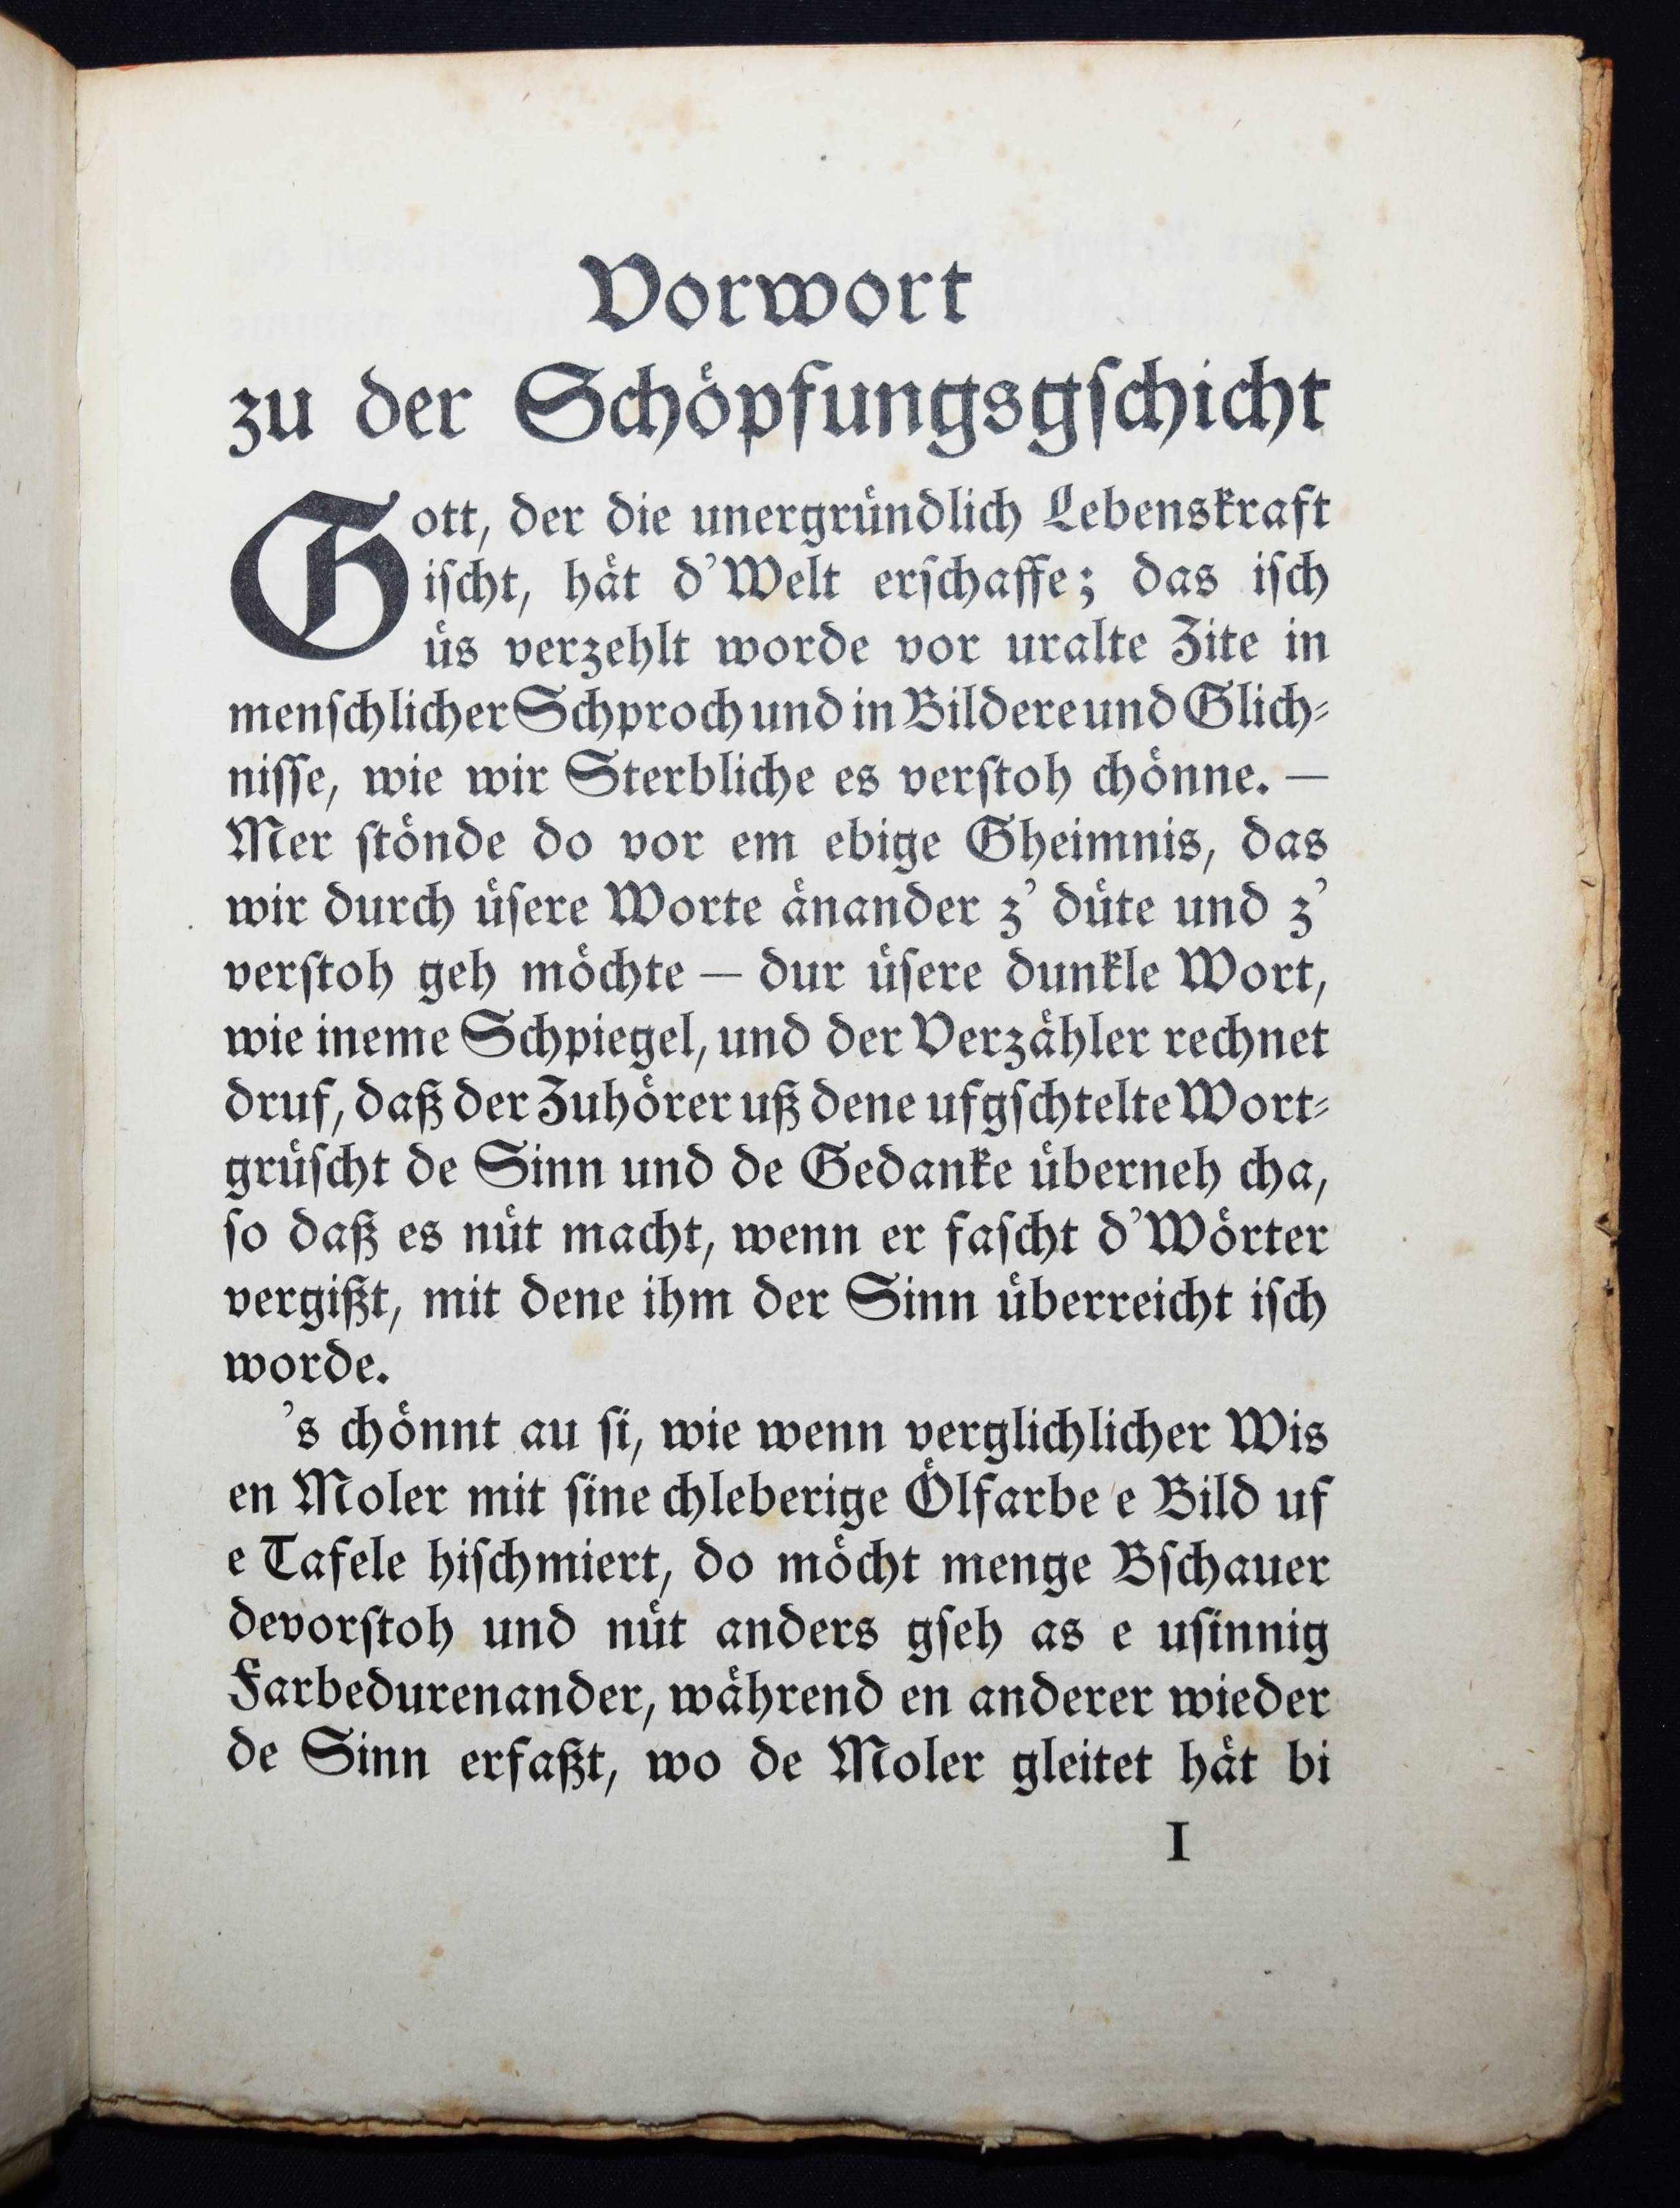 Vorwort
zu der Schöpfungsgſchicht
Gott, der die unergründlich Lebenskraft
iſcht, hät d’Welt erſchaffe; das iſch
üs verzehlt worde vor uralte Zite in
menſchlicher Schproch und in Bildere und Glich⸗
niſſe, wie wir Sterbliche es verſtoh chönne. —
Mer ſtönde do vor em ebige Gheimnis, das
wir durch üſere Worte änander z’ düte und z’
verſtoh geh möchte — dur üſere dunkle Wort,
wie ineme Schpiegel, und der Verzähler rechnet
druf, daß der Zuhörer uß dene ufgſchtelte Wort⸗
grüſcht de Sinn und de Gedanke überneh cha,
ſo daß es nüt macht, wenn er faſcht d’Wörter
vergißt, mit dene ihm der Sinn überreicht iſch
worde.
’s chönnt au ſi, wie wenn verglichlicher Wis
en Moler mit ſine chleberige Ölfarbe e Bild uf
e Tafele hiſchmiert, do möcht menge Bſchauer
devorſtoh und nüt anders gſeh as e uſinnig
Farbedurenander, während en anderer wieder
de Sinn erfaßt, wo de Moler gleitet hät bi
I